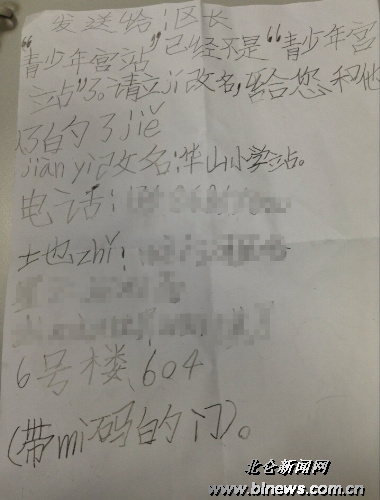 发送给:区长
“青少年宫站”已经不是“青少年宫
站”了。请立jí改名,给您和他
们的了jiě
jiàn yì改名:华山小学站。
电话:
土也zhǐ:
6号楼、604
(带mì码的门)。
北仑新闻网
www.blnews.com.cn